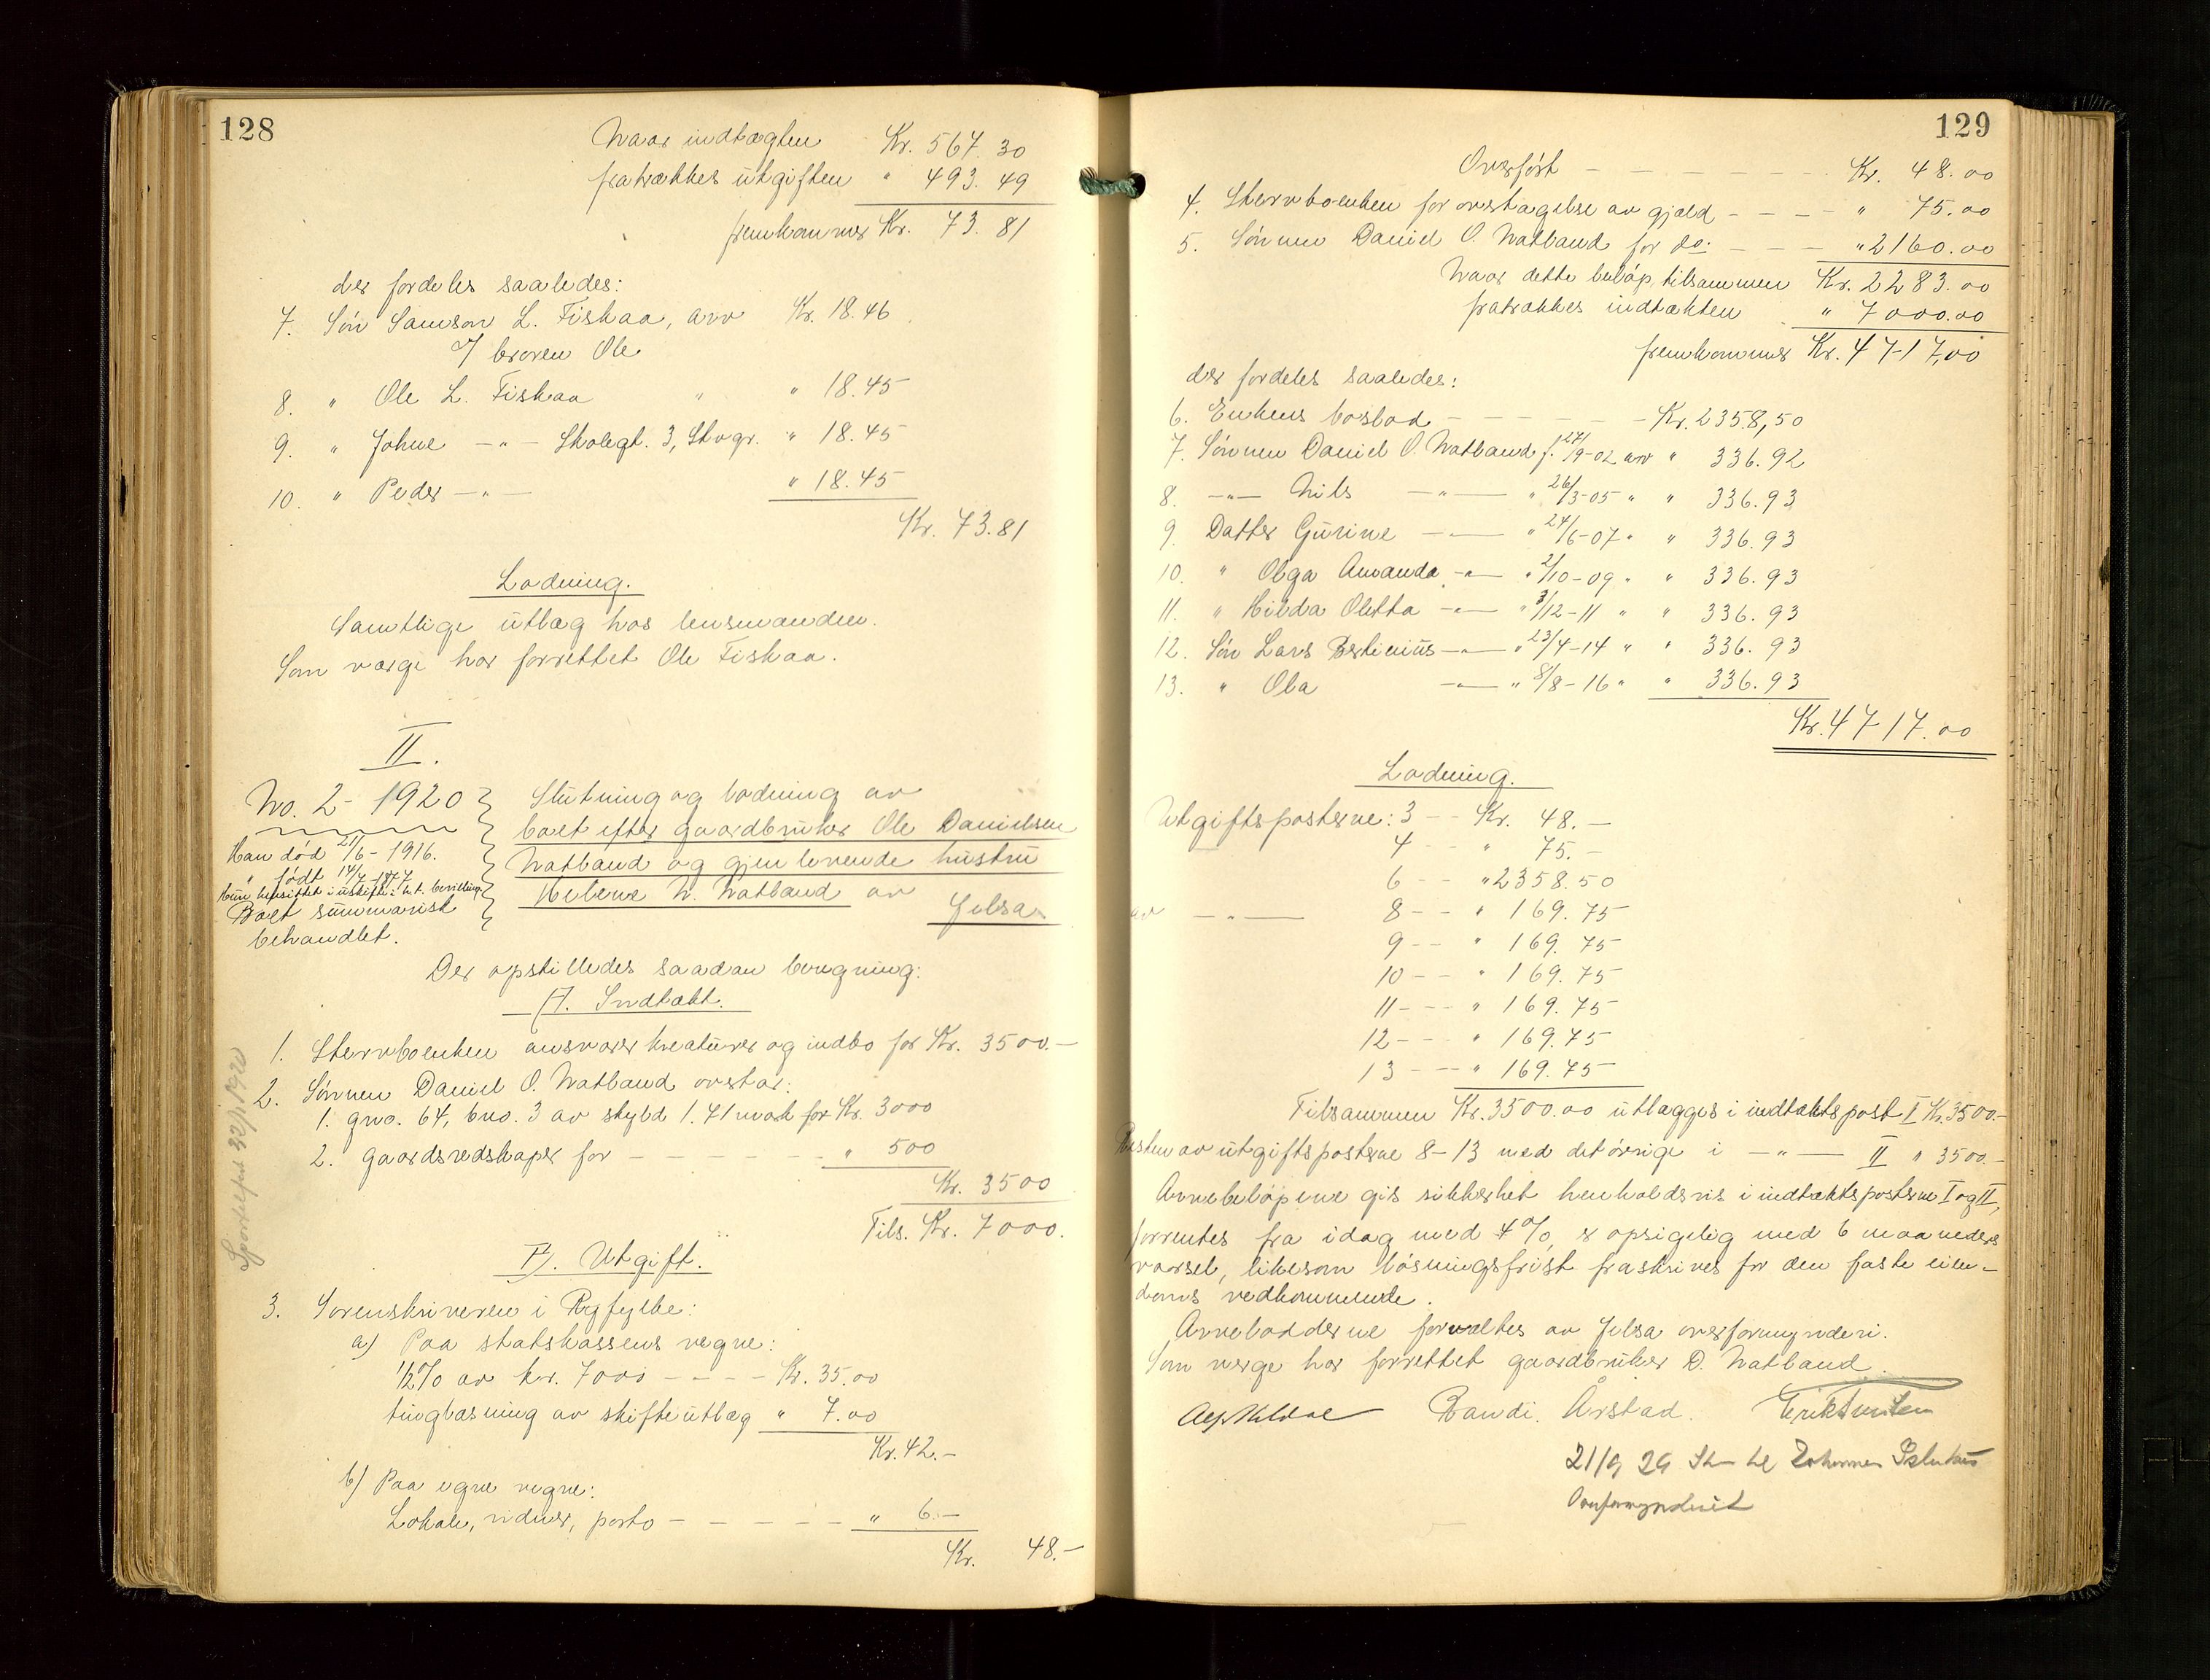 128
Naar indtægten Kr. 567.30
fratrækkes utgiften " 493.49
fremkommer Kr. 73.81
der fordeles saaledes:
7. Søn Samson L. Fiskaa, arv Kr. 18.46
v/ broren Ole
8. " Ole L. Fiskaa " " 18.45
9. " Johne -"- Skolegt. 3, Stvgr. " 18.45
10. " Peder -"- " 18.45
Kr. 73.81
Lodning.
Samtlige utlæg hos lensmanden.
Som værge har forrettet Ole Fiskaa.
II.
No. 2 - 1920
Han død 21/6 - 1916.
" født 14/7 1877
Hun hensittet i uskifte i h.t. bevilling.
Boet summarisk
behandlet.
Slutning og lodning av
boet efter gaardbruker Ole Danielsen
Natland og gjenlevende hustru
Helene N. Natland av
Jelsa
Der opstilledes saadan beregning:
A. Indtækt.
1. Stervboenken ansvarer kreaturer og indbo for Kr. 3500.-
2. Sønnen Daniel O. Natland ovstar:
1. gno. 64, bno. 3 av skyld 1.71 mark for Kr. 3000
2. gaardsredskaper for - - - - - - " 500
Kr. 3500
Tils. Kr. 7000.
B. Utgift.
3. Sorenskriveren i Ryfylke:
a) Paa statskassens vegne:
1/2% av kr. 7000 - - - - Kr. 35.00
tinglæsning av skifteutlæg " 7.00
Kr. 42.-
b) Paa egne vegne:
Lokale, vidner, porto - - - - - " 6.-
Kr. 48.-
129
Overført - - - - - - - Kr. 48.00
4. Stervboenken for overtagelse av gjæld - - - - " 75.00
5. Sønnen Daniel O. Natland for do. - - - " 2160.00
Naar dette beløp tilsammen Kr. 2283.00
fratrækkes indtækten " 7000.00
fremkommer Kr. 4717,00
der fordeles saaledes:
6. Enkens boslod - - - - - - Kr. 2358,50
7. Sønnen Daniel O. Natland f. 27/9-02 arv " 336.92
8. -"- Nils -"- " 26/3-05 " " 336.93
9. Datter Gurine -"- " 24/6-07 " " 336.93
10. " Olga Amanda -"- " 2/10-09 " " 336.93
11. " Hilda Oletta -"- " 3/12-11 " " 336.93
12. Søn Lars Bertinius -"- " 23/4-14 " " 336.93
13. " Ola -"- " 8/8-16 " " 336.93
Kr. 4717.00
Lodning.
Utgiftsposterne: 3 - - Kr. 48.-
4 - - " 75.-
6 - - " 2358.50
av -"- 8 - - " 169.75
9 - - " 169.75
10 - - " 169.75
11 - - - " 169.75
12 - - - " 169.75
13 - - - " 169.75
Tilsammen Kr. 3500.00 utlægges i indtæktspost I Kr. 3500.-
Resten av utgiftsposterne 8-13 med det øvrige i -"- II " 3500.-
Arvebeløpene gis sikkerhet henholdsvis i indtæktsposterne I og II,
forrentes fra idag med 4%, er opsigelig med 6 maaneders
varsel, likesom løsningsfrist fraskrives for den faste eien-
doms vedkommende.
Arvelodderne forvaltes av Jelsa overformynderi.
Som verge har forrettet gaardbruker D. Natland.
Randi Årstad.
21/9 29
Overformynderiet